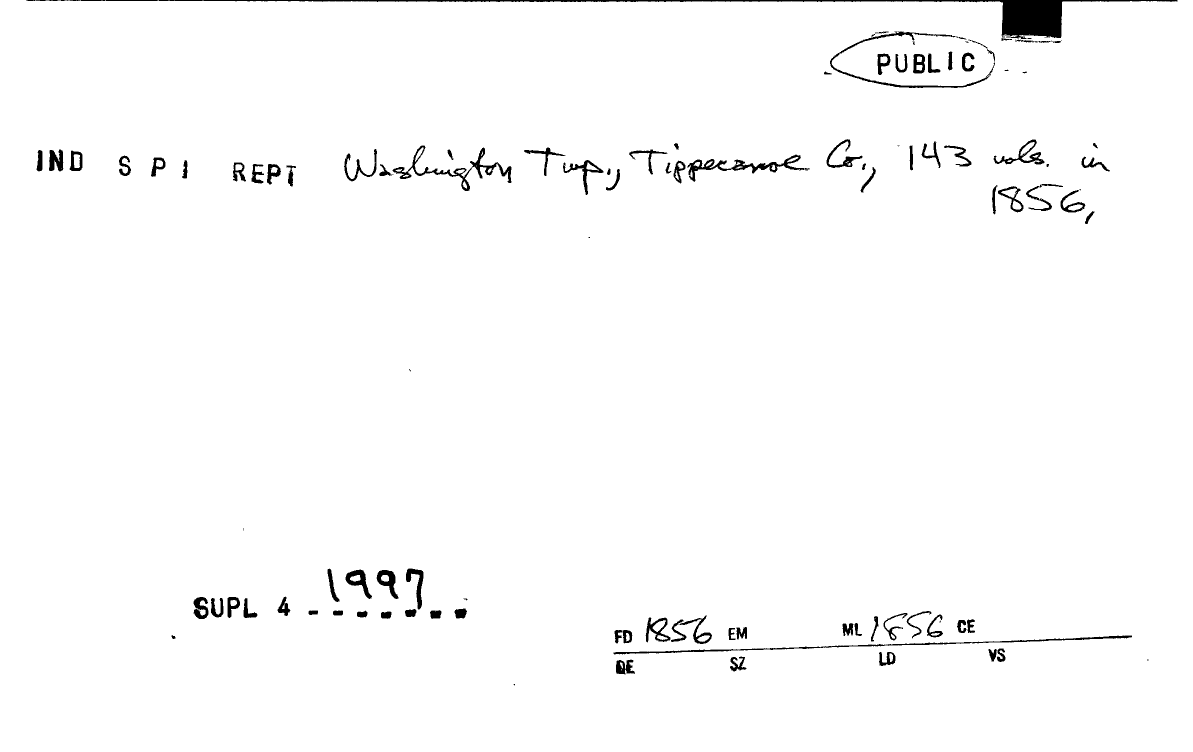 PUBLIC
IND S P I REPT Washington Twp., Tippecanoe Co., 143 vols. in
1856,
SUPL 4 1997
FD 1856 EM ML 1856 CE
DE SZ LD VS